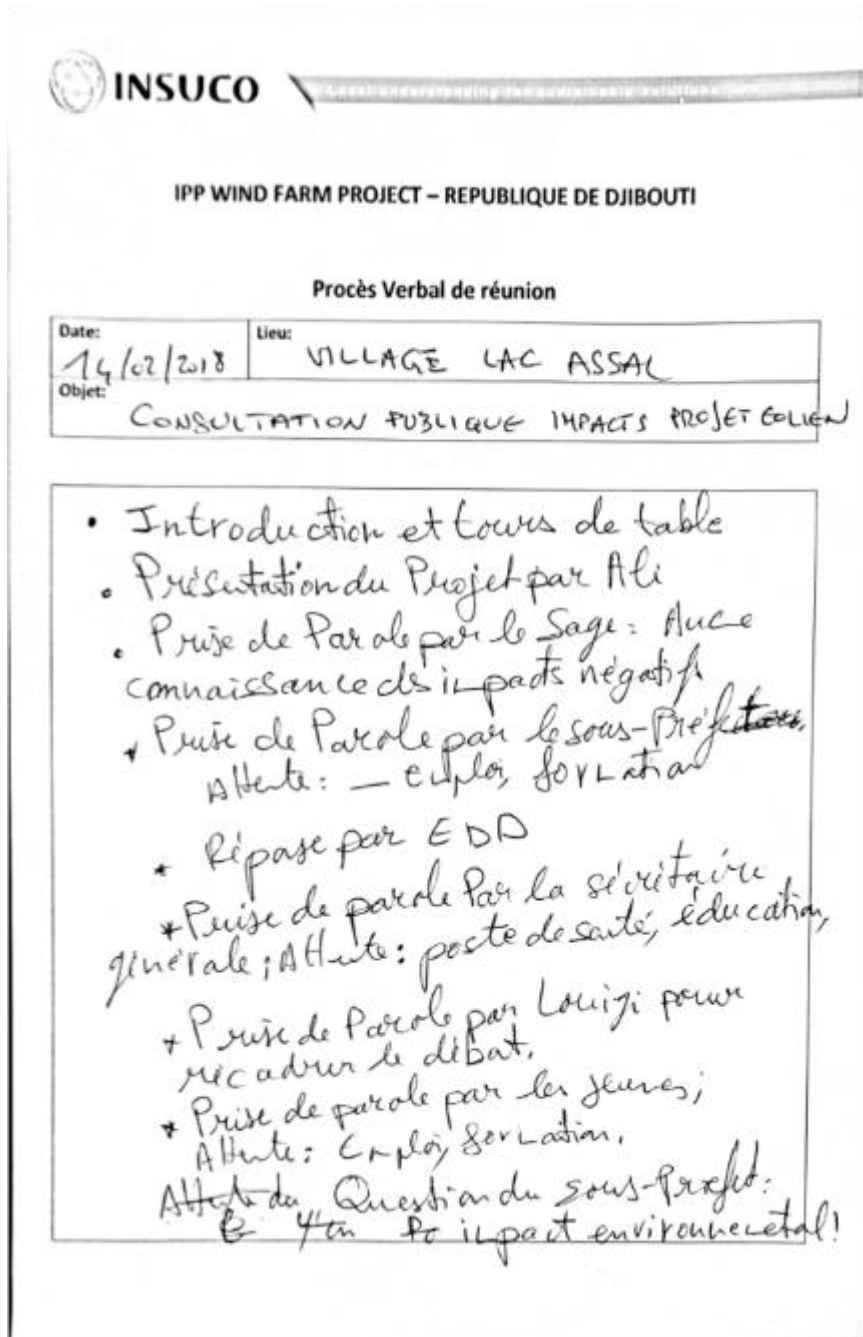 INSUCO
IPP WIND FARM PROJECT – REPUBLIQUE DE DJIBOUTI
Procès Verbal de réunion
Date: Lieu:
14/02/2018 VILLAGE LAC ASSAL
Objet:
CONSULTATION PUBLIQUE IMPACTS PROJET EOLIEN
• Introduction et tours de table
• Présentation du Projet par Ali
• Prise de Parole par le Sage : Aucune
connaissance des impacts négatifs
* Prise de Parole par le sous-Préfet
Attente : — Emploi, formation
* Réponse par EDD
* Prise de parole Par la sécrétaire
générale ; Attente : poste de santé, éducation,
* Prise de Parole par Louigi pour
récadrer le débat.
* Prise de parole par les jeunes ;
Attente : Emploi, formation.
Question du sous-Prefet :
impact environnemental !